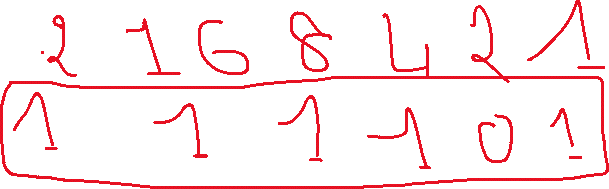 2 16 8 4 2 1
1 1 1 1 0 1